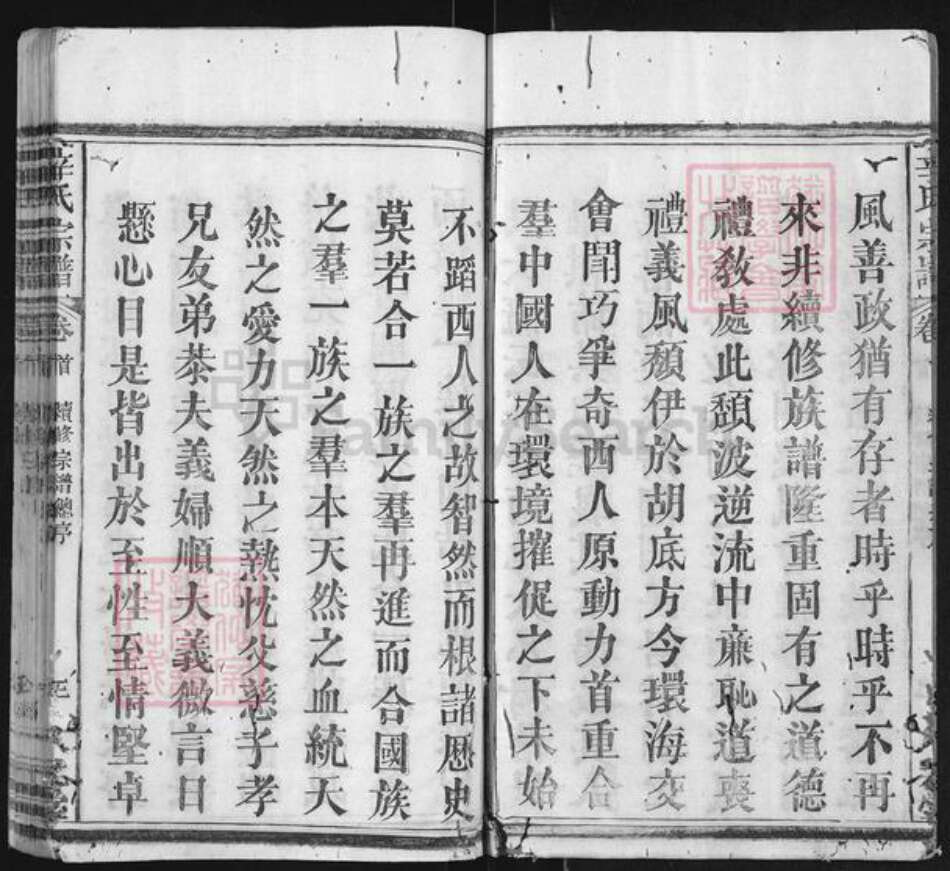 風善政猶有存者時乎時乎不再
來非續修族譜隆重固有之道德
禮敎處此頹波逆流中亷恥道喪
禮義風頹伊於胡底方今環海交
會鬬巧爭奇西人原動力首重合
羣中國人在環境摧促之下未始
不蹈西人之故智然而根諸歷史
莫若合一族之羣再進而合國族
之羣一族之羣本天然之血統天
然之愛力天然之熱忱父慈子孝
兄友弟恭夫義婦順大義微言日
懸心目是皆出於至性至情堅卓
辛氏宗譜
卷首
續修宗譜總序
FamilySearch